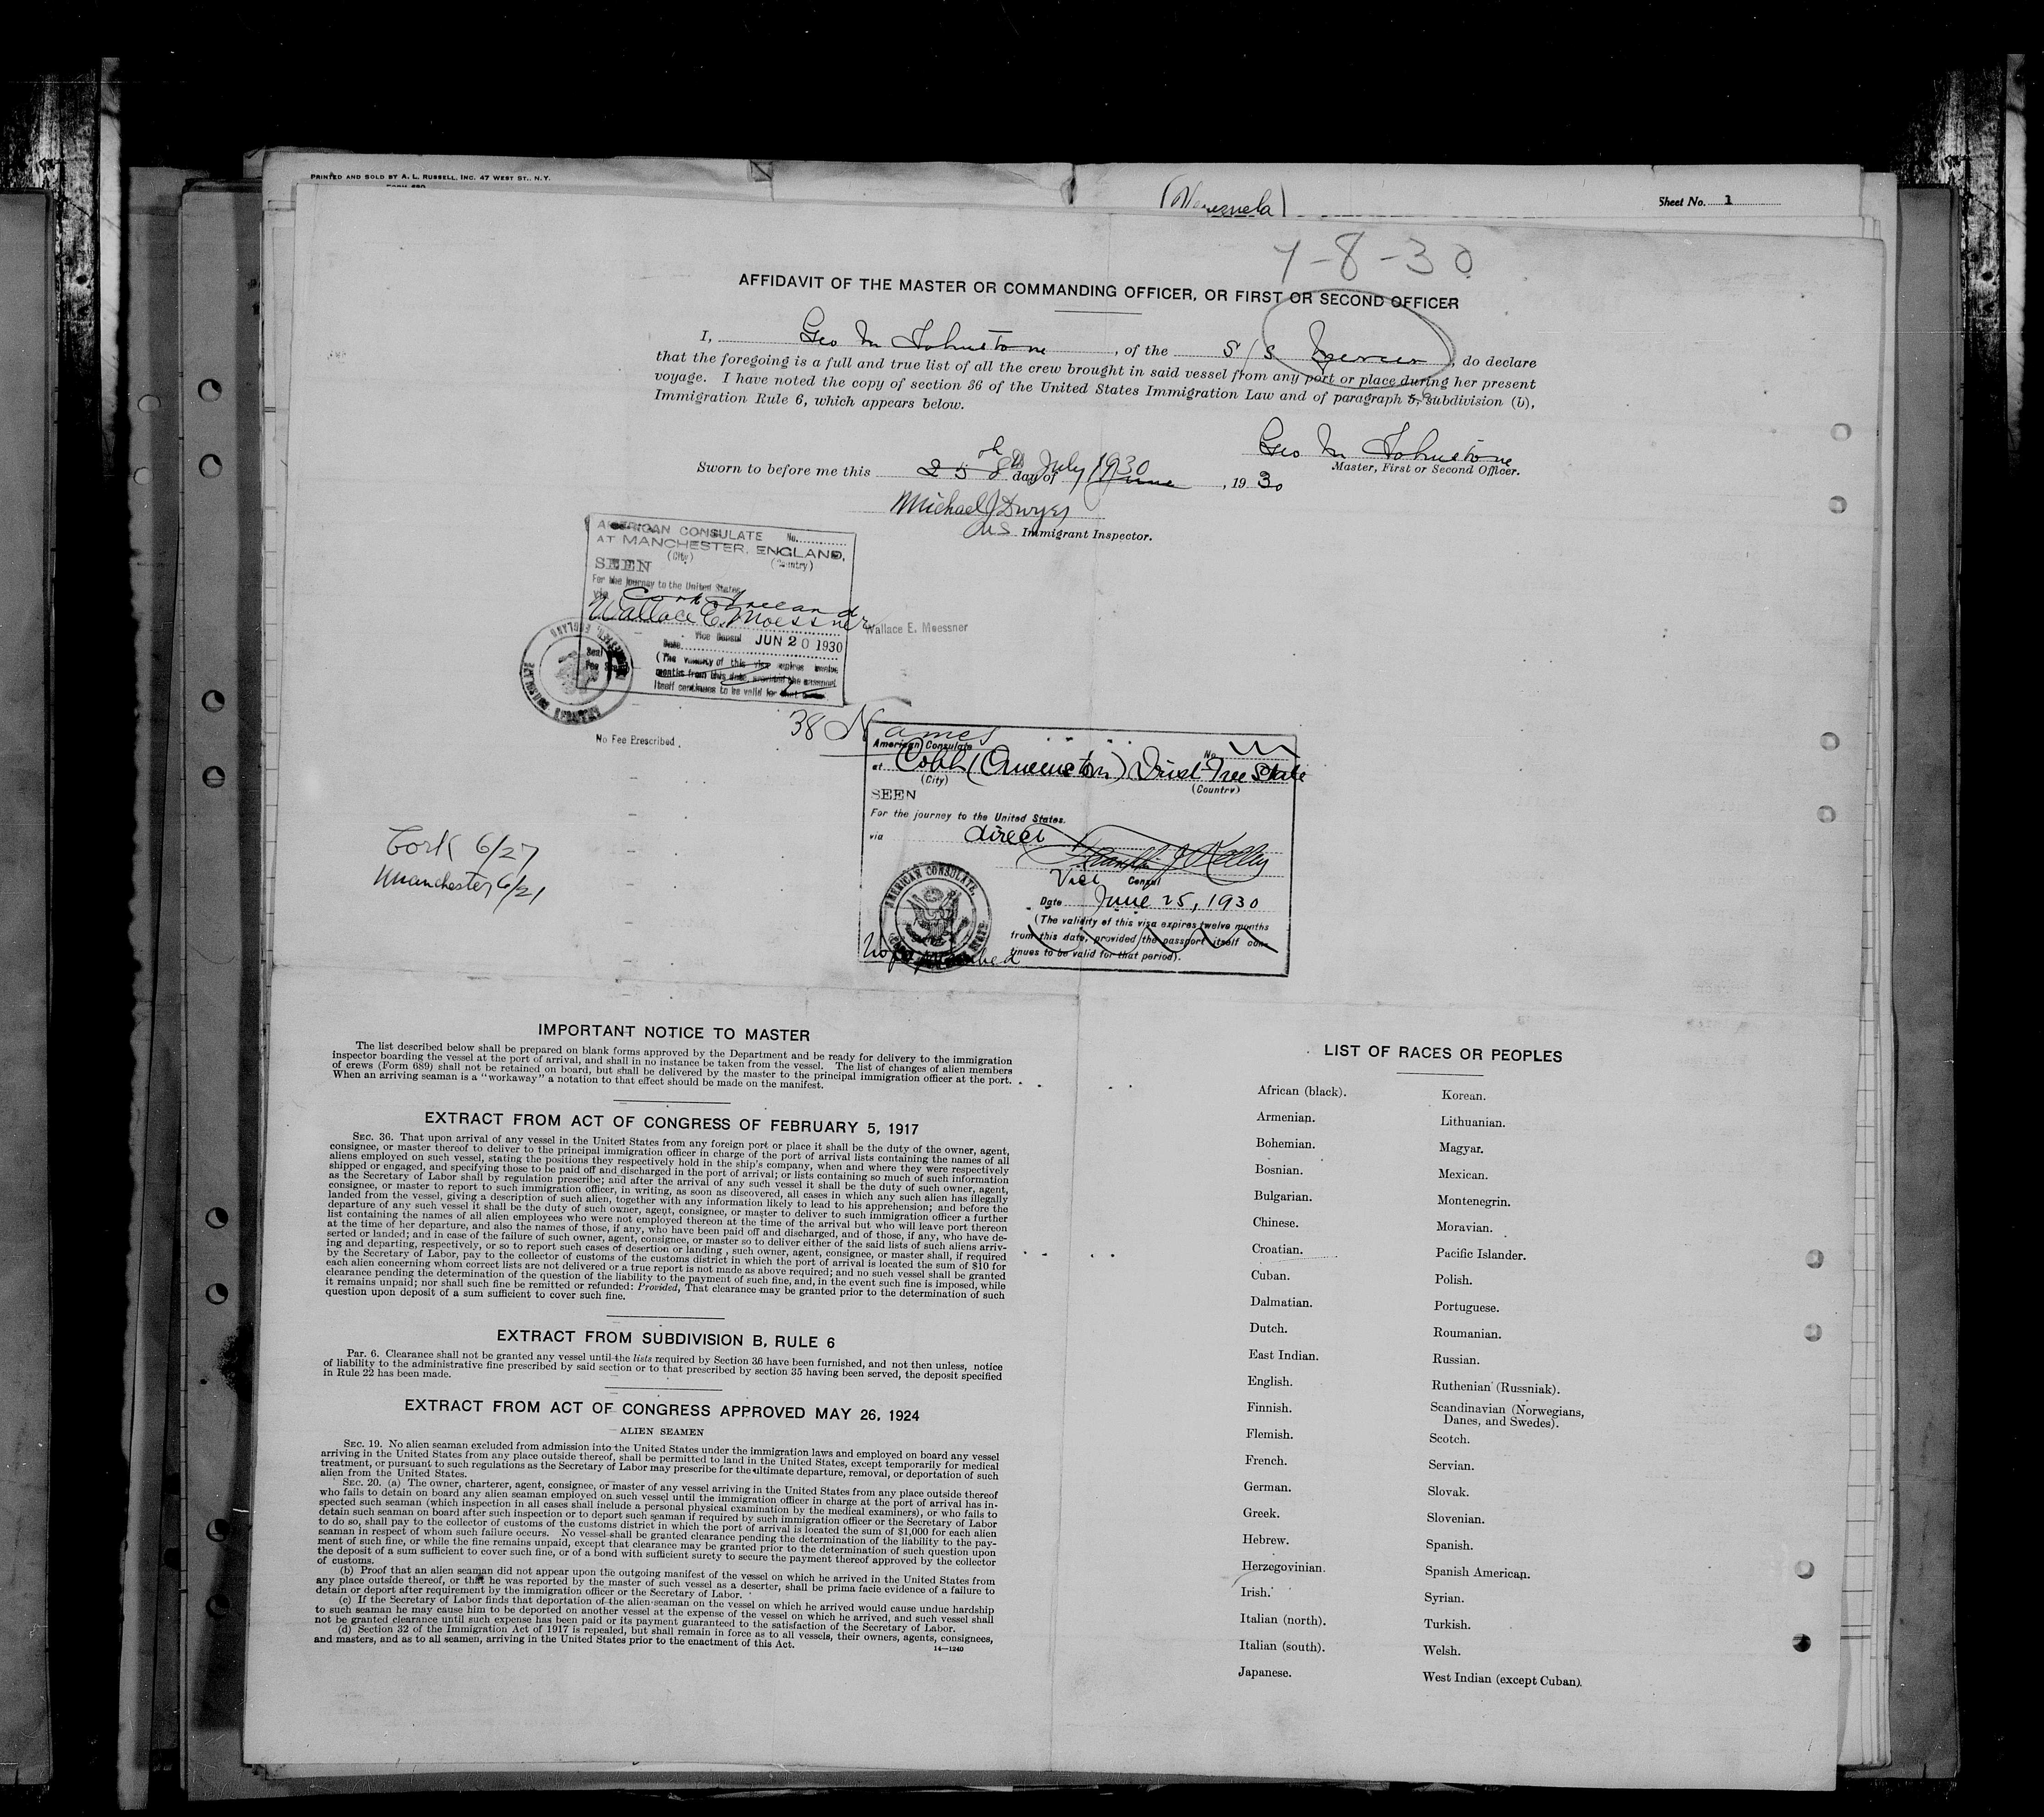 PRINTED AND SOLD BY A. L. RUSSELL, INC. 47 WEST ST., N.Y.
Sheet No. 1
7-8-30
AFFIDAVIT OF THE MASTER OR COMMANDING OFFICER, OR FIRST OR SECOND OFFICER
I, Geo M Johnstone, of the S/S Mercer, do declare
that the foregoing is a full and true list of all the crew brought in said vessel from any port or place during her present
voyage. I have noted the copy of section 36 of the United States Immigration Law and of paragraph subdivision (b),
Immigration Rule 6, which appears below.
Geo M Johnstone
Master, First or Second Officer.
Sworn to before me this 25 8th day of July 1930 June, 1930
Michael J Dwyer
US Immigrant Inspector.
AMERICAN CONSULATE No.
AT MANCHESTER, ENGLAND,
(City) (Country)
SEEN
For the journey to the United States
via Cork Ireland
Wallace E. Moessner
Wallace E. Moessner
Vice Consul
Date JUN 20 1930
(The validity of this visa expires twelve
months from this date, provided the passport
itself continues to be valid for that
No Fee Prescribed.
38 Names
American Consulate No.
at Cobh (Queenstown) Irish Free State
(City) (Country)
SEEN
For the journey to the United States.
via direct
Vice Consul
Date June 25, 1930
(The validity of this visa expires twelve months
from this date, provided the passport itself con-
tinues to be valid for that period).
AMERICAN CONSULATE,
No fee prescribed
Cork 6/27
Manchester 6/21
IMPORTANT NOTICE TO MASTER
The list described below shall be prepared on blank forms approved by the Department and be ready for delivery to the immigration
inspector boarding the vessel at the port of arrival, and shall in no instance be taken from the vessel. The list of changes of alien members
of crews (Form 689) shall not be retained on board, but shall be delivered by the master to the principal immigration officer at the port.
When an arriving seaman is a "workaway" a notation to that effect should be made on the manifest.
EXTRACT FROM ACT OF CONGRESS OF FEBRUARY 5, 1917
SEC. 36. That upon arrival of any vessel in the United States from any foreign port or place it shall be the duty of the owner, agent,
consignee, or master thereof to deliver to the principal immigration officer in charge of the port of arrival lists containing the names of all
aliens employed on such vessel, stating the positions they respectively hold in the ship's company, when and where they were respectively
shipped or engaged, and specifying those to be paid off and discharged in the port of arrival; or lists containing so much of such information
as the Secretary of Labor shall by regulation prescribe; and after the arrival of any such vessel it shall be the duty of such owner, agent,
consignee, or master to report to such immigration officer, in writing, as soon as discovered, all cases in which any such alien has illegally
landed from the vessel, giving a description of such alien, together with any information likely to lead to his apprehension; and before the
departure of any such vessel it shall be the duty of such owner, agent, consignee, or master to deliver to such immigration officer a further
list containing the names of all alien employees who were not employed thereon at the time of the arrival but who will leave port thereon
at the time of her departure, and also the names of those, if any, who have been paid off and discharged, and of those, if any, who have de-
serted or landed; and in case of the failure of such owner, agent, consignee, or master so to deliver either of the said lists of such aliens arriv-
ing and departing, respectively, or so to report such cases of desertion or landing, such owner, agent, consignee, or master shall, if required
by the Secretary of Labor, pay to the collector of customs of the customs district in which the port of arrival is located the sum of $10 for
each alien concerning whom correct lists are not delivered or a true report is not made as above required; and no such vessel shall be granted
clearance pending the determination of the question of the liability to the payment of such fine, and, in the event such fine is imposed, while
it remains unpaid; nor shall such fine be remitted or refunded: Provided, That clearance may be granted prior to the determination of such
question upon deposit of a sum sufficient to cover such fine.
EXTRACT FROM SUBDIVISION B, RULE 6
Par. 6. Clearance shall not be granted any vessel until the lists required by Section 36 have been furnished, and not then unless, notice
of liability to the administrative fine prescribed by said section or to that prescribed by section 35 having been served, the deposit specified
in Rule 22 has been made.
EXTRACT FROM ACT OF CONGRESS APPROVED MAY 26, 1924
ALIEN SEAMEN
SEC. 19. No alien seaman excluded from admission into the United States under the immigration laws and employed on board any vessel
arriving in the United States from any place outside thereof, shall be permitted to land in the United States, except temporarily for medical
treatment, or pursuant to such regulations as the Secretary of Labor may prescribe for the ultimate departure, removal, or deportation of such
alien from the United States.
SEC. 20. (a) The owner, charterer, agent, consignee, or master of any vessel arriving in the United States from any place outside thereof
who fails to detain on board any alien seaman employed on such vessel until the immigration officer in charge at the port of arrival has in-
spected such seaman (which inspection in all cases shall include a personal physical examination by the medical examiners), or who fails to
detain such seaman on board after such inspection or to deport such seaman if required by such immigration officer or the Secretary of Labor
to do so, shall pay to the collector of customs of the customs district in which the port of arrival is located the sum of $1,000 for each alien
seaman in respect of whom such failure occurs. No vessel shall be granted clearance pending the determination of the liability to the pay-
ment of such fine, or while the fine remains unpaid, except that clearance may be granted prior to the determination of such question upon
the deposit of a sum sufficient to cover such fine, or of a bond with sufficient surety to secure the payment thereof approved by the collector
of customs.
(b) Proof that an alien seaman did not appear upon the outgoing manifest of the vessel on which he arrived in the United States from
any place outside thereof, or that he was reported by the master of such vessel as a deserter, shall be prima facie evidence of a failure to
detain or deport after requirement by the immigration officer or the Secretary of Labor.
(c) If the Secretary of Labor finds that deportation of the alien seaman on the vessel on which he arrived would cause undue hardship
to such seaman he may cause him to be deported on another vessel at the expense of the vessel on which he arrived, and such vessel shall
not be granted clearance until such expense has been paid or its payment guaranteed to the satisfaction of the Secretary of Labor.
(d) Section 32 of the Immigration Act of 1917 is repealed, but shall remain in force as to all vessels, their owners, agents, consignees,
and masters, and as to all seamen, arriving in the United States prior to the enactment of this Act.
14—1240
LIST OF RACES OR PEOPLES
African (black).
Armenian.
Bohemian.
Bosnian.
Bulgarian.
Chinese.
Croatian.
Cuban.
Dalmatian.
Dutch.
East Indian.
English.
Finnish.
Flemish.
French.
German.
Greek.
Hebrew.
Herzegovinian.
Irish.
Italian (north).
Italian (south).
Japanese.
Korean.
Lithuanian.
Magyar.
Mexican.
Montenegrin.
Moravian.
Pacific Islander.
Polish.
Portuguese.
Roumanian.
Russian.
Ruthenian (Russniak).
Scandinavian (Norwegians,
Danes, and Swedes).
Scotch.
Servian.
Slovak.
Slovenian.
Spanish.
Spanish American.
Syrian.
Turkish.
Welsh.
West Indian (except Cuban).